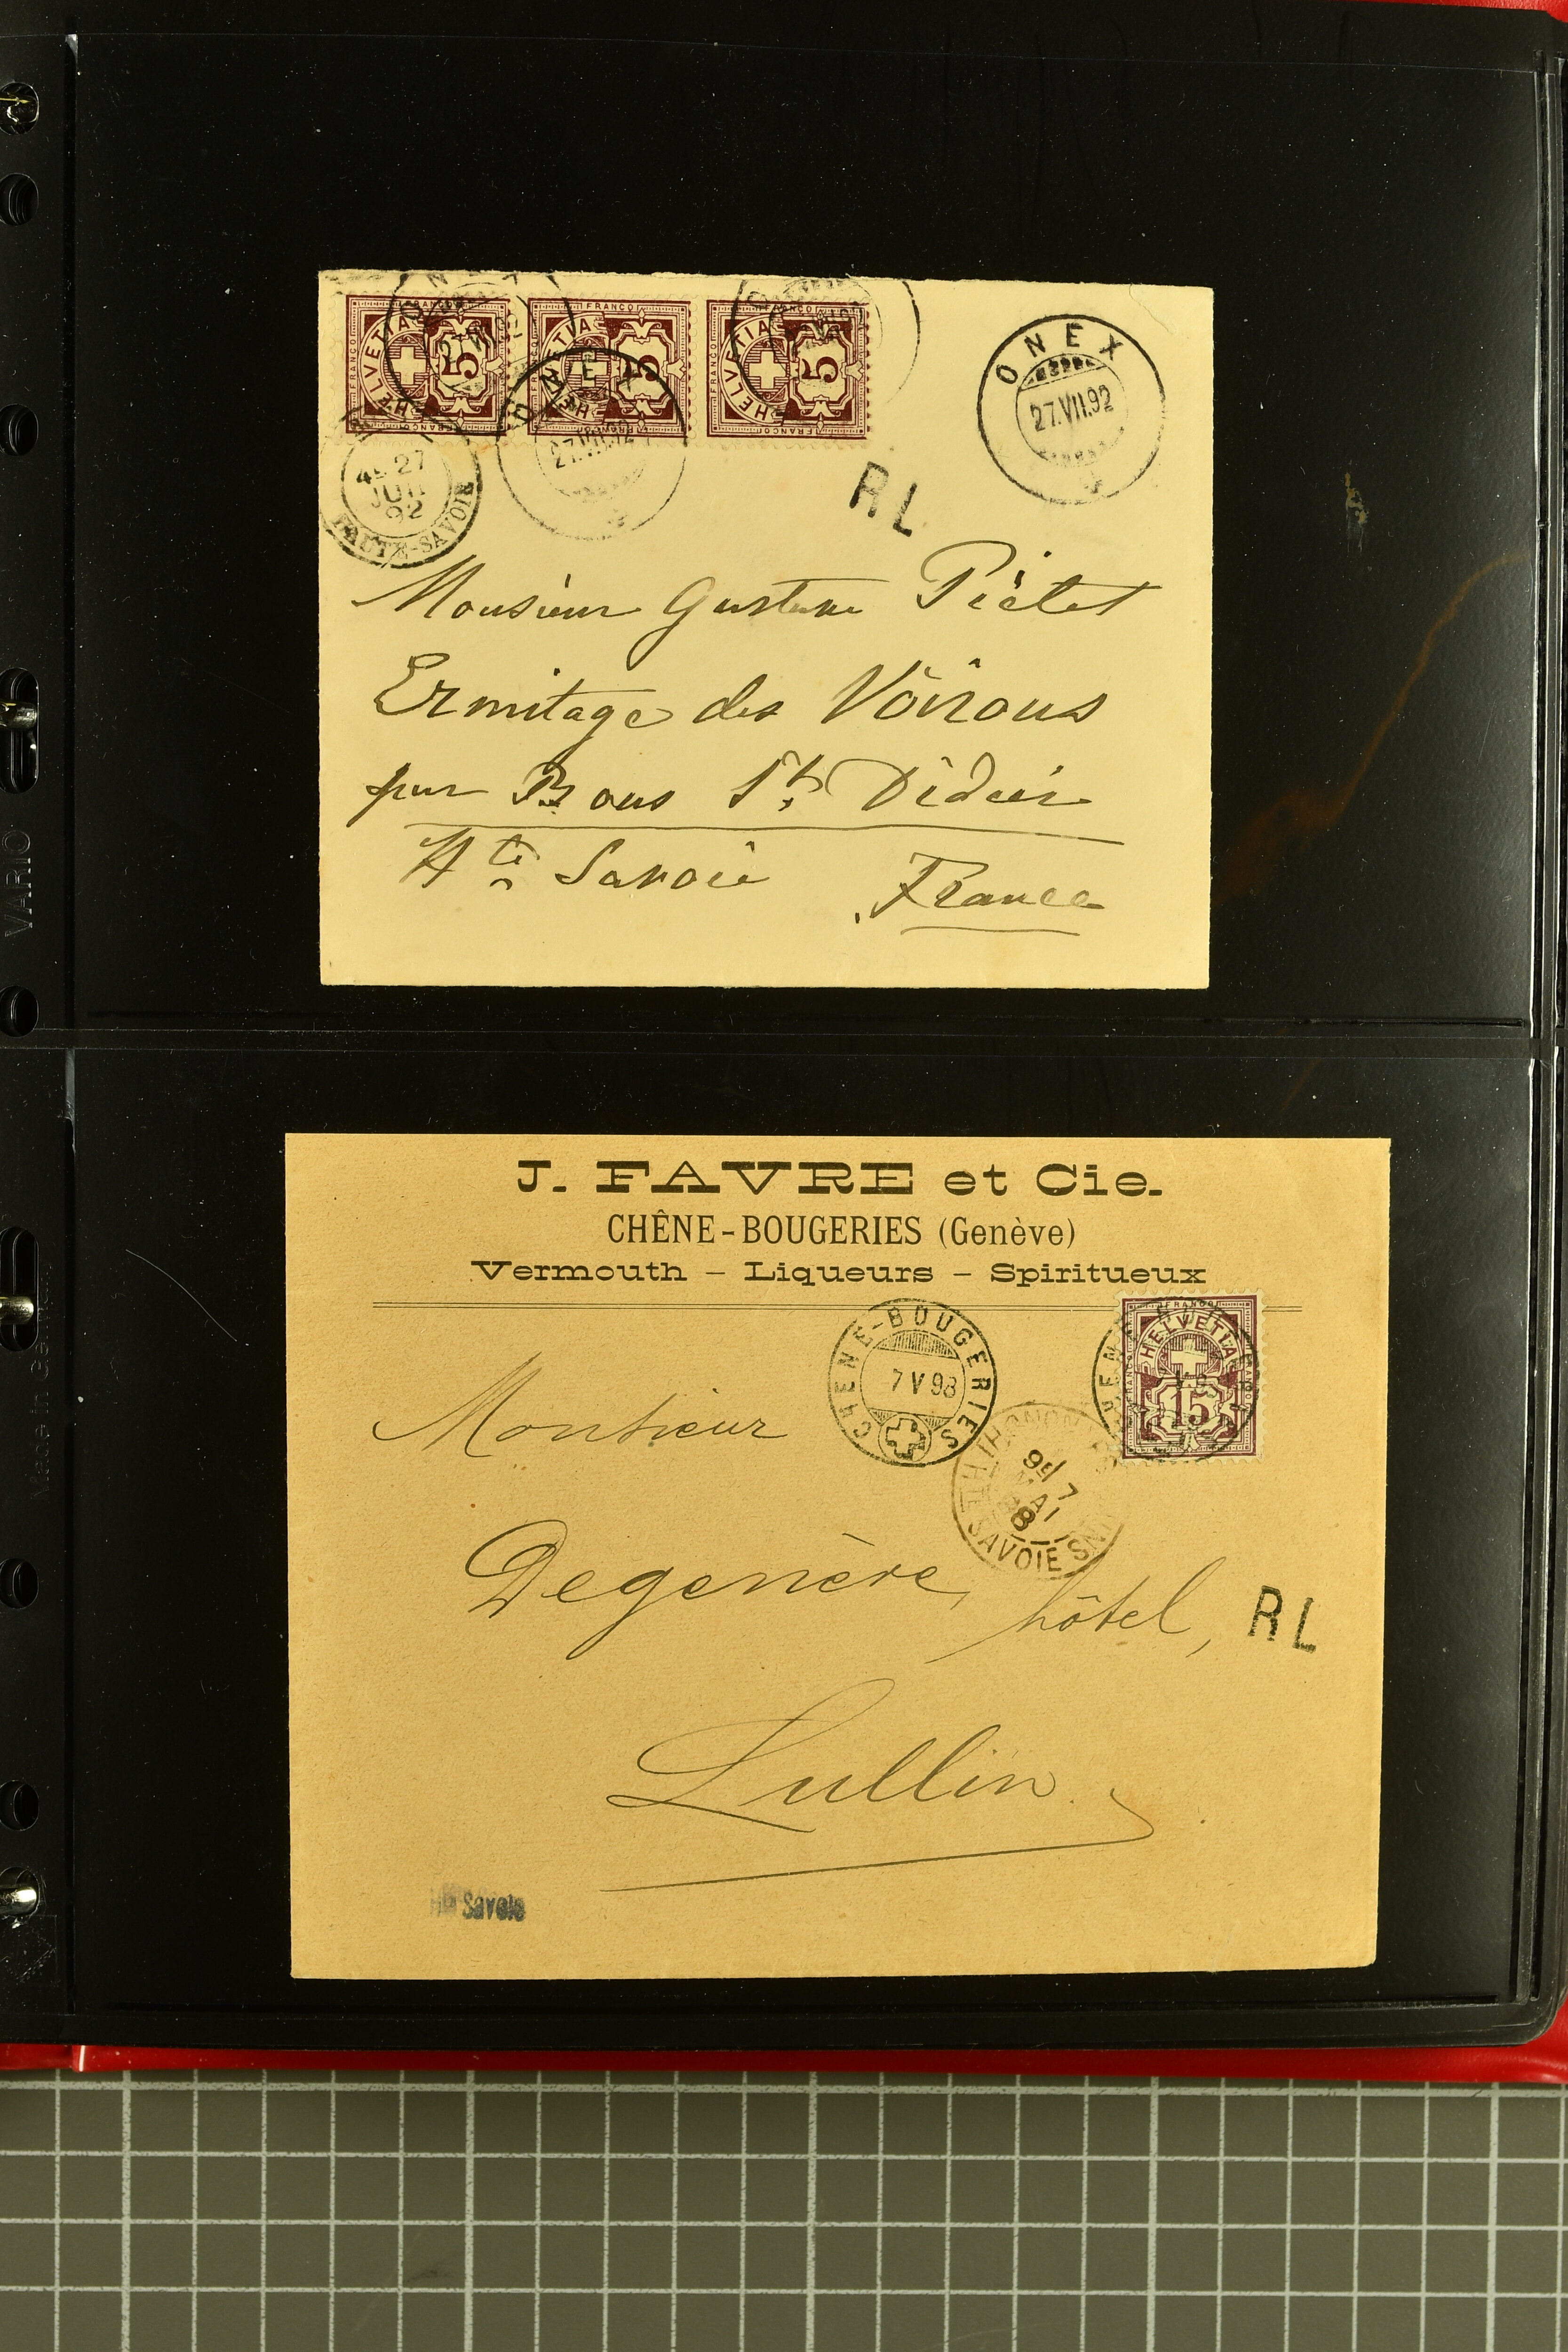 FRANCO
HELVETIA
5
FRANCO
HELVETIA
5
FRANCO
HELVETIA
5
ONEX
27.VII.92
ONEX
27.VII.92
27
92
HAUTE-SAVOIE
RL
Monsieur Gustave Pictet
Ermitage des Voirons
par Bons St. Didier
Hte Savoie
France
VARIO
J. FAVRE et Cie.
CHÊNE-BOUGERIES (Genève)
Vermouth – Liqueurs – Spiritueux
CHENE-BOUGERIES
7 V 98
FRANCO
HELVETIA
15
THONON
7
MAI
98
HTE SAVOIE
Monsieur
Degenève, hôtel,
RL
Lullin
Hte Savoie
Made in Germany